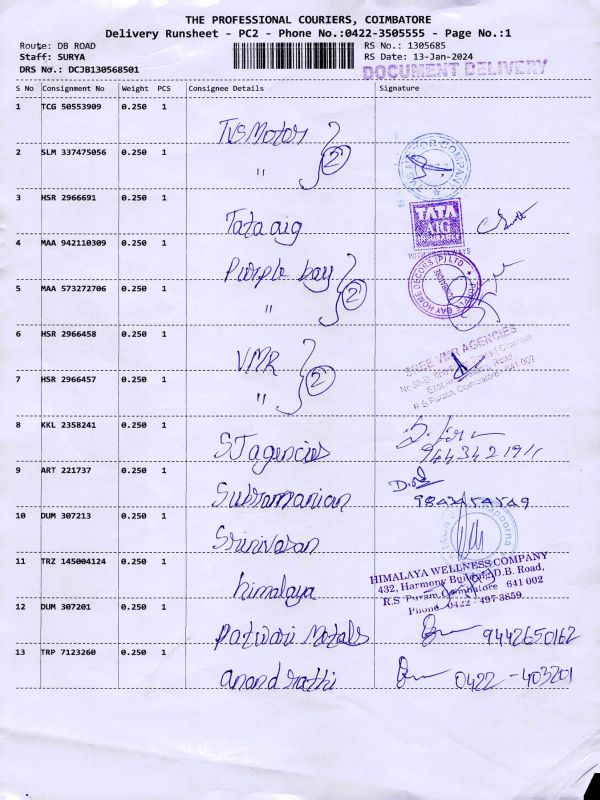 THE PROFESSIONAL COURIERS, COIMBATORE
Delivery Runsheet - PC2 - Phone No.:0422-3505555 - Page No.:1
Route: DB ROAD RS No.: 1305685
Staff: SURYA RS Date: 13-Jan-2024
DRS No.: DCJB130568501 DOCUMENT DELIVERY
S No Consignment No Weight PCS Consignee Details Signature
1 TCG 50553909 0.250 1 TVS Motor
2 SLM 337475056 0.250 1 " 2
3 HSR 2966691 0.250 1 Tata aig TATA AIG INSURANCE
WITH YOU ALWAYS
4 MAA 942110309 0.250 1 Purple bay
5 MAA 573272706 0.250 1 " 2
6 HSR 2966458 0.250 1 VMR SREE VMR AGENCIES
R.S Puram, Coimbatore - 641 002
7 HSR 2966457 0.250 1 " 2
8 KKL 2358241 0.250 1 ST agencies
9 ART 221737 0.250 1 Subramanian
10 DUM 307213 0.250 1 Srinivasan
11 TRZ 145004124 0.250 1 himalaya HIMALAYA WELLNESS COMPANY
432, Harmony Building, D.B. Road,
R.S Puram, Coimbatore 641 002
Phone 0422 - 497 3859
12 DUM 307201 0.250 1 Patwari Metals 9442650162
13 TRP 7123260 0.250 1 anand rathi 0422 - 403201